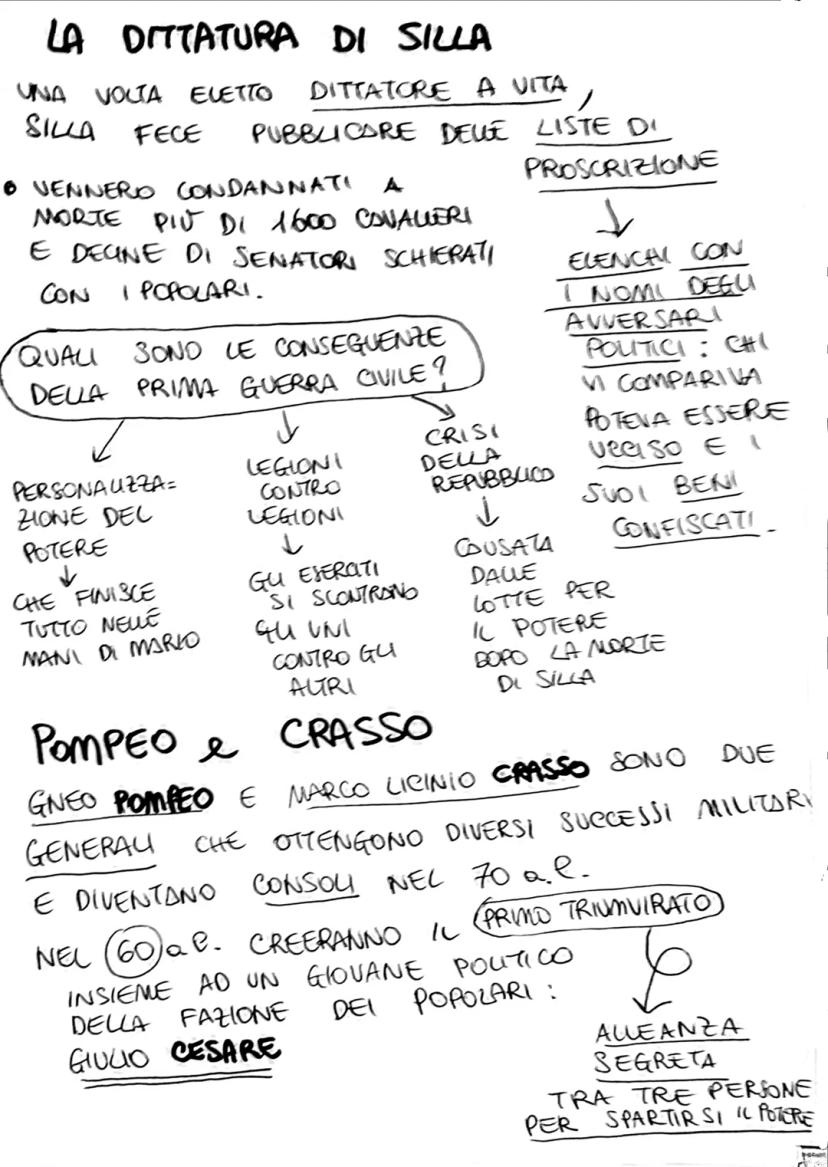 LA DITTATURA DI SILLA
UNA VOLTA ELETTO DITTATORE A VITA,
SILLA FECE PUBBLICARE DELLE LISTE DI
PROSCRIZIONE
• VENNERO CONDANNATI A
MORTE PIÙ DI 1600 CAVALIERI
E DECINE DI SENATORI SCHIERATI
CON I POPOLARI.
ELENCHI CON
I NOMI DEGLI
AVVERSARI
POLITICI: CHI
VI COMPARIVA
POTEVA ESSERE
UCCISO E I
SUOI BENI
CONFISCATI.
QUALI SONO LE CONSEGUENZE
DELLA PRIMA GUERRA CIVILE?
PERSONALIZZA=
ZIONE DEL
POTERE
CHE FINISCE
TUTTO NELLE
MANI DI MARIO
LEGIONI
CONTRO
LEGIONI
GLI ESERCITI
SI SCONTRANO
GLI UNI
CONTRO GLI
ALTRI
CRISI
DELLA
REPUBBLICA
CAUSATA
DALLE
LOTTE PER
IL POTERE
DOPO LA MORTE
DI SILLA
POMPEO e CRASSO
GNEO POMPEO E MARCO LICINIO CRASSO SONO DUE
GENERALI CHE OTTENGONO DIVERSI SUCCESSI MILITARI
E DIVENTANO CONSOLI NEL 70 a.C.
NEL 60 a.C. CREERANNO IL PRIMO TRIUMVIRATO
INSIEME AD UN GIOVANE POLITICO
DELLA FAZIONE DEI POPOLARI:
GIULIO CESARE
ALLEANZA
SEGRETA
TRA TRE PERSONE
PER SPARTIRSI IL POTERE